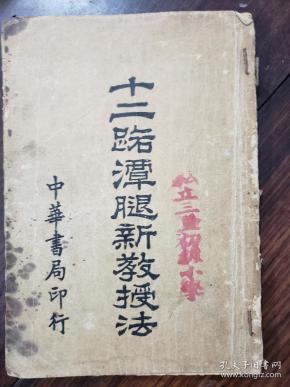 十二路潭腿新教授法
中華書局印行
孔夫子旧书网